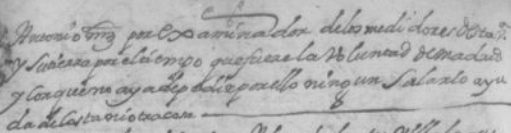 Antonio por examinador delos medidores desta
y su tierra por el tiempo que fuere la Voluntad de madrid
y conque no aya de pedir por ello ningun salario ayu
da de costa ni otra cosa